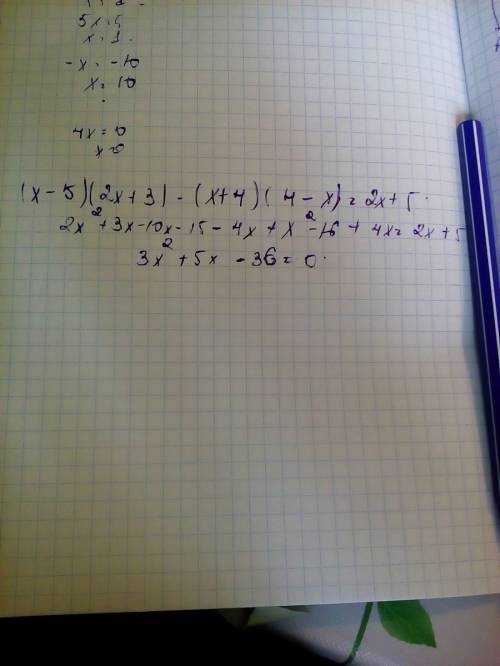 5x = 5
x = 1.
-x = -10
x = 10
4x = 0
x=0
(x - 5)(2x + 3) - (x+4)(4 - x) = 2x + 5.
2x² + 3x - 10x - 15 - 4x + x² - 16 + 4x = 2x + 5
3x² + 5x - 36 = 0.